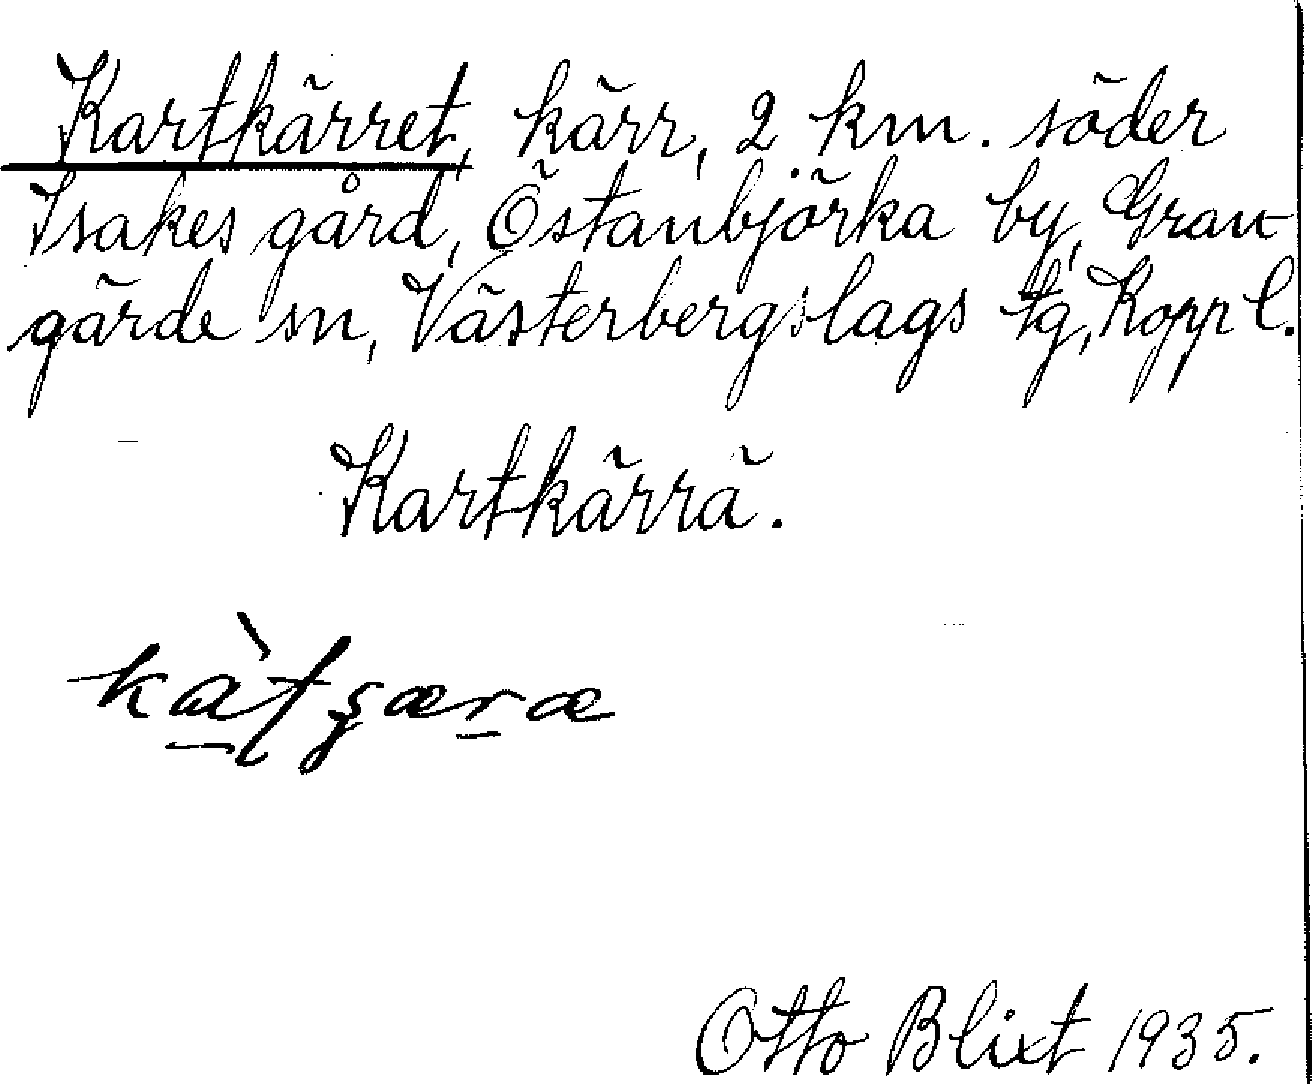 Kartkärret, kärr, 2 km. söder
Isakes gård, Östanbjörka by, Gran-
gärde sn, Västerbergslags tg, Kopp l.
Kartkärrä.
Otto Blixt 1935.